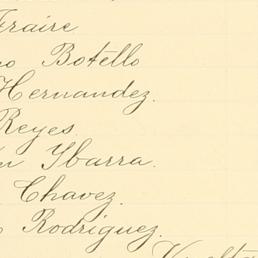 Fraire
o Botello
Hernandez.
Reyes.
n Ybarra.
Chavez.
Rodriguez.